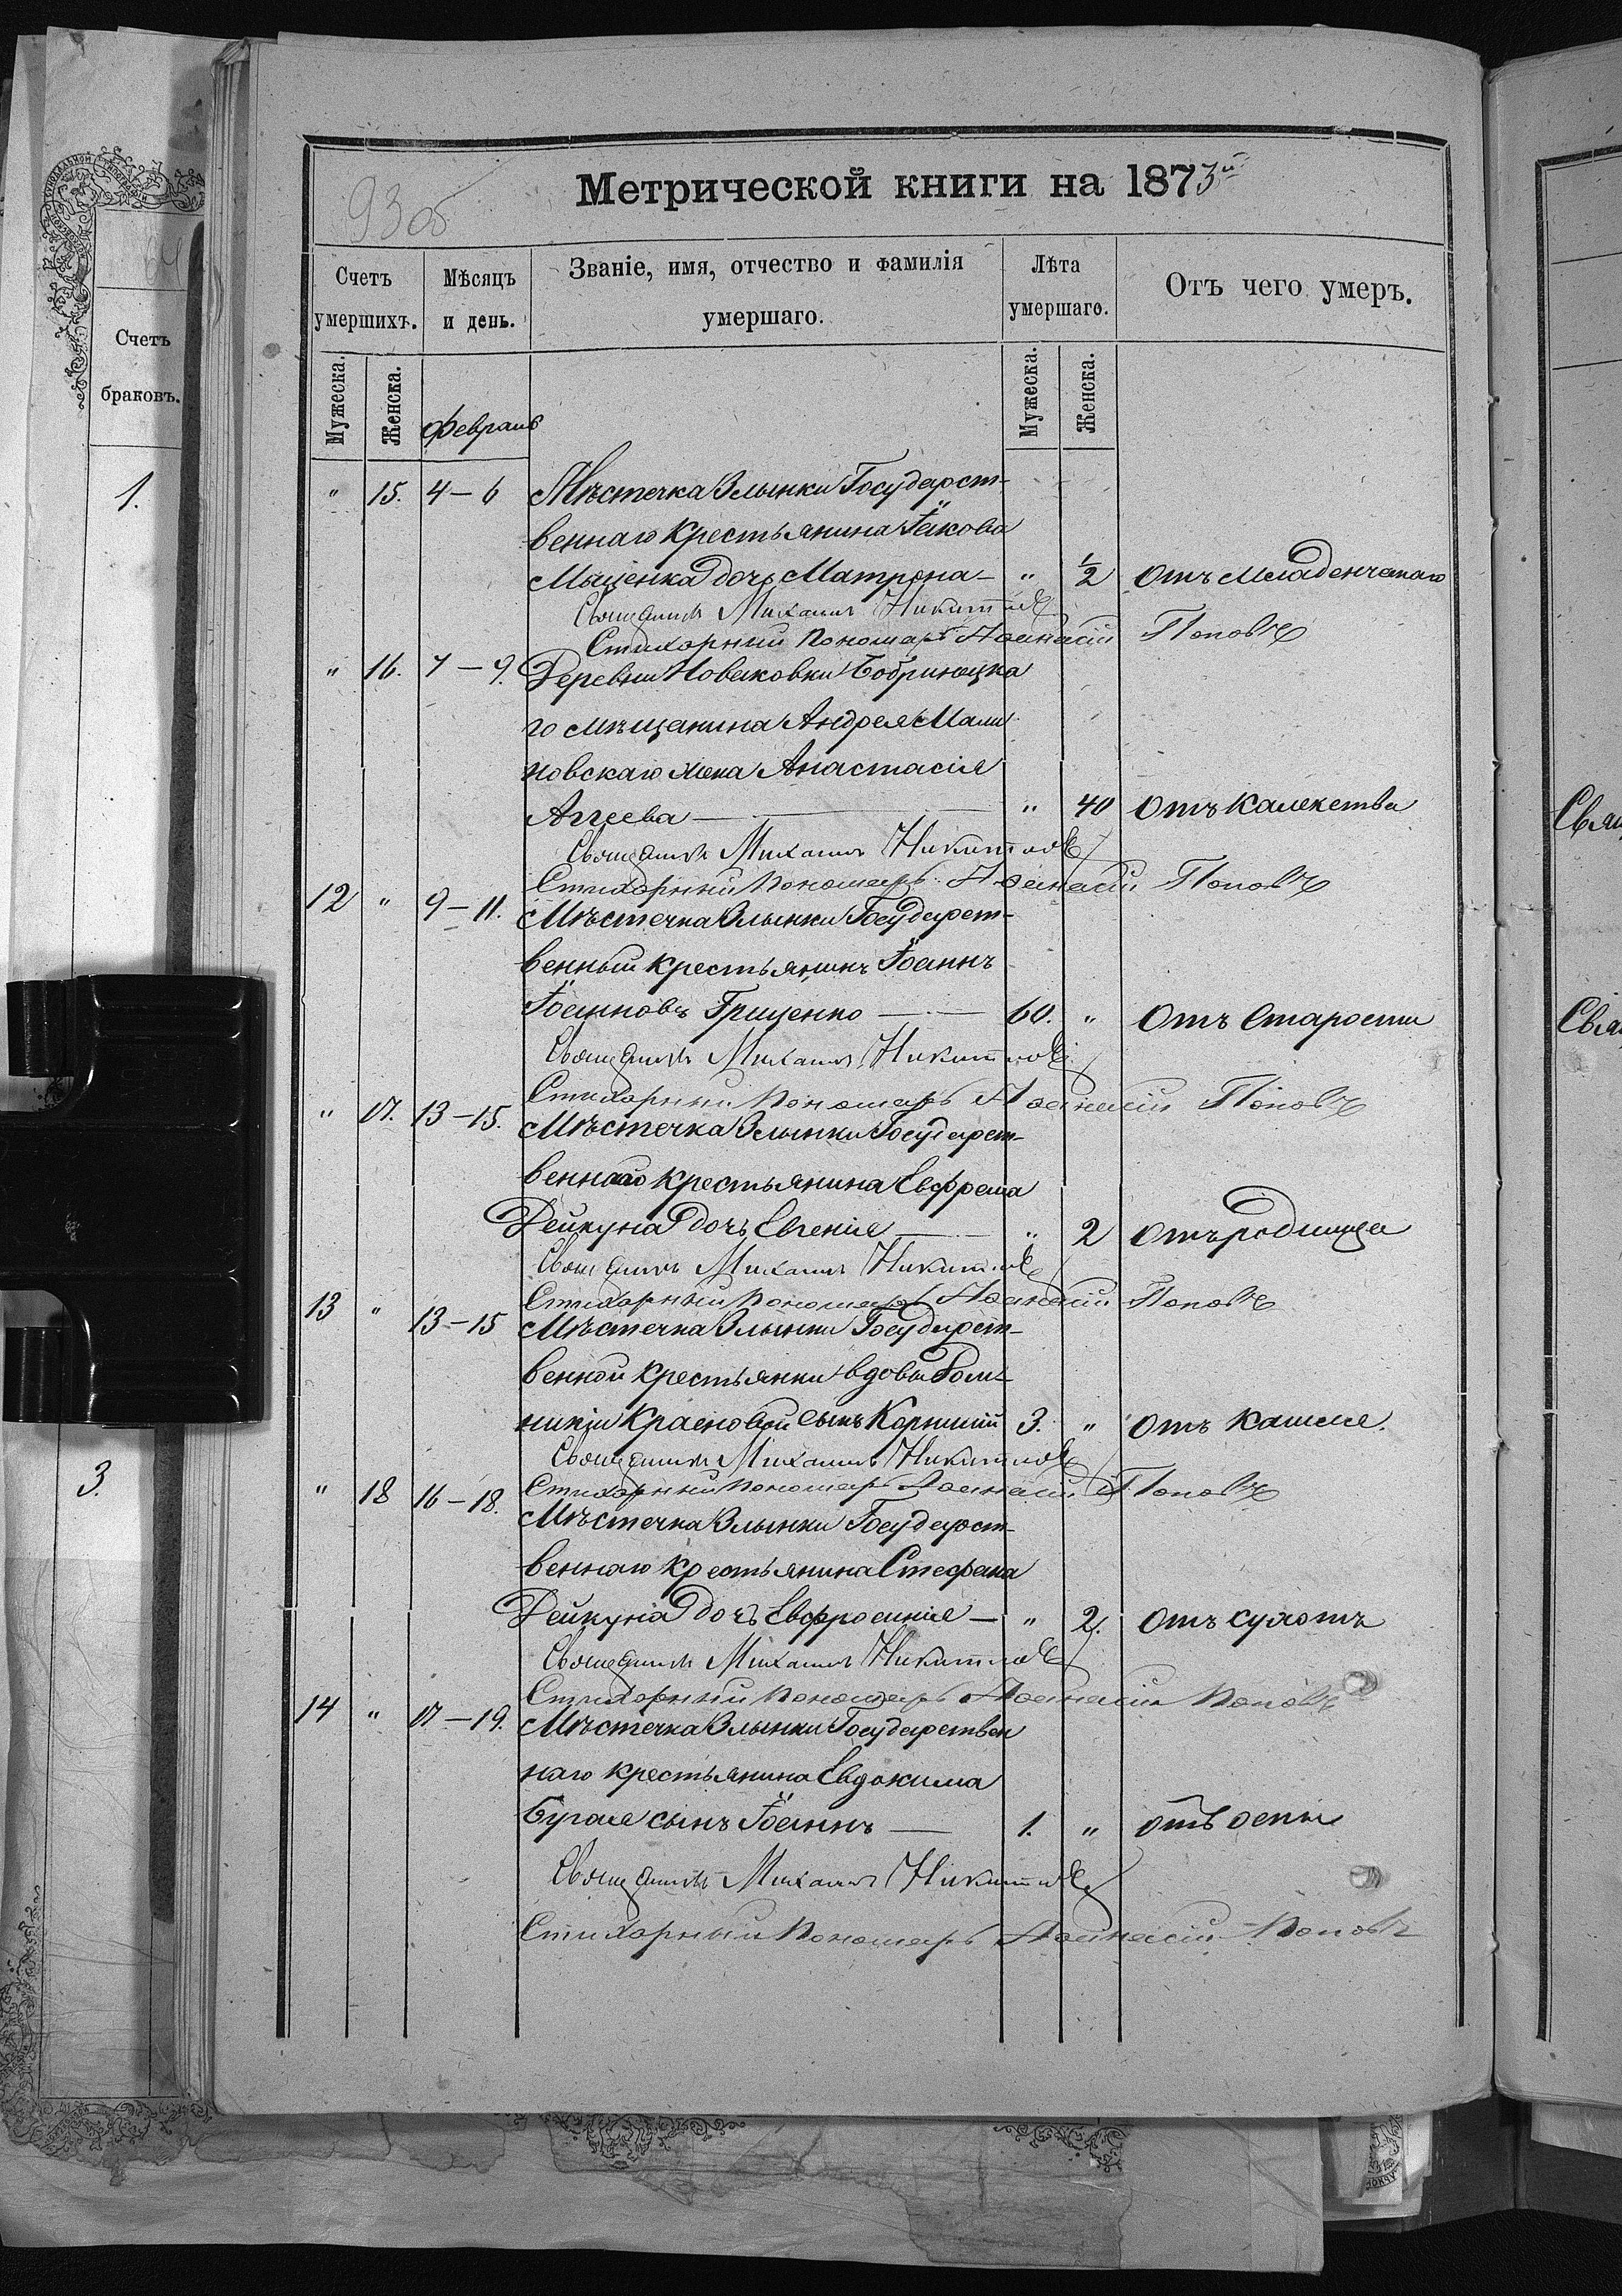 Метрической книги на 1873й
93об
Счетъ умершихъ.
Мѣсяцъ и день.
Званіе, имя, отчество и фамилія умершаго.
Лѣта умершаго.
Отъ чего умеръ.
Мужеска.
Женска.
Февраль
Мужеска.
Женска.
" 15. 4–6 Мѣстечка Злынки Государст-
веннаго крестьянина Іакова
Мыценка дочь Матрона – " 1/2 Отъ младенческаго
Священникъ Михаилъ Никитинъ
Стихарный пономарь Аѳанасій Поповъ
" 16. 7–9. Деревни Новаковки Бобринецка
го мѣщанина Андрея Мали
новскаго жена Анастасія
Аггеева — " 40 Отъ калекства
Священникъ Михаилъ Никитинъ
Стихарный пономарь Аѳанасій Поповъ
12 " 9–11. Мѣстечка Злынки Государст-
венный крестьянинъ Іоаннъ
Іоанновъ Гриценко — 60. " Отъ старости
Священникъ Михаилъ Никитинъ
Стихарный пономарь Аѳанасій Поповъ
" 17. 13–15. Мѣстечка Злынки Государст-
веннаго крестьянина Евфрема
Дейкуна дочь Евгенія — " 2 Отъ родимца
Священникъ Михаилъ Никитинъ
Стихарный пономарь Аѳанасій Поповъ
13 " 13–15 Мѣстечка Злынки Государст-
венной крестьянки вдовы
Красновой сынъ Корнилій 3. " Отъ кашля.
Священникъ Михаилъ Никитинъ
Стихарный пономарь Аѳанасій Поповъ
" 18 16–18. Мѣстечка Злынки Государст-
веннаго крестьянина Стефана
Дейкуна дочь Евфросинія – " 2. Отъ сухотъ
Священникъ Михаилъ Никитинъ
Стихарный пономарь Аѳанасій Поповъ
14 " 17–19. Мѣстечка Злынки Государствен
наго крестьянина Евдокима
Бугая сынъ Іоаннъ — 1. " отъ оспы
Священникъ Михаилъ Никитинъ
Стихарный пономарь Аѳанасій Поповъ
Счетъ
браковъ.
1.
3.